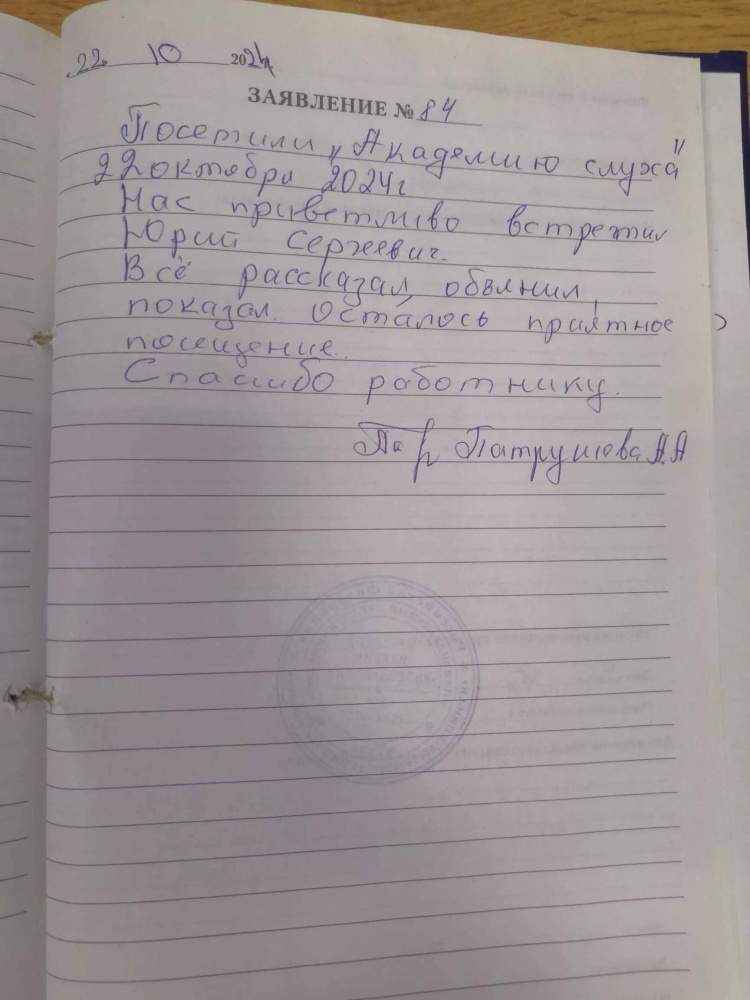 22. 10 2024
ЗАЯВЛЕНИЕ № 84
Посетили „Академию слуха"
22 октября 2024г
Нас приветливо встретил
Юрий Сергеевич.
Всё рассказал, обьянил,
показал. Осталось приятное
посещение.
Спасибо работнику.
Патрушова А.А